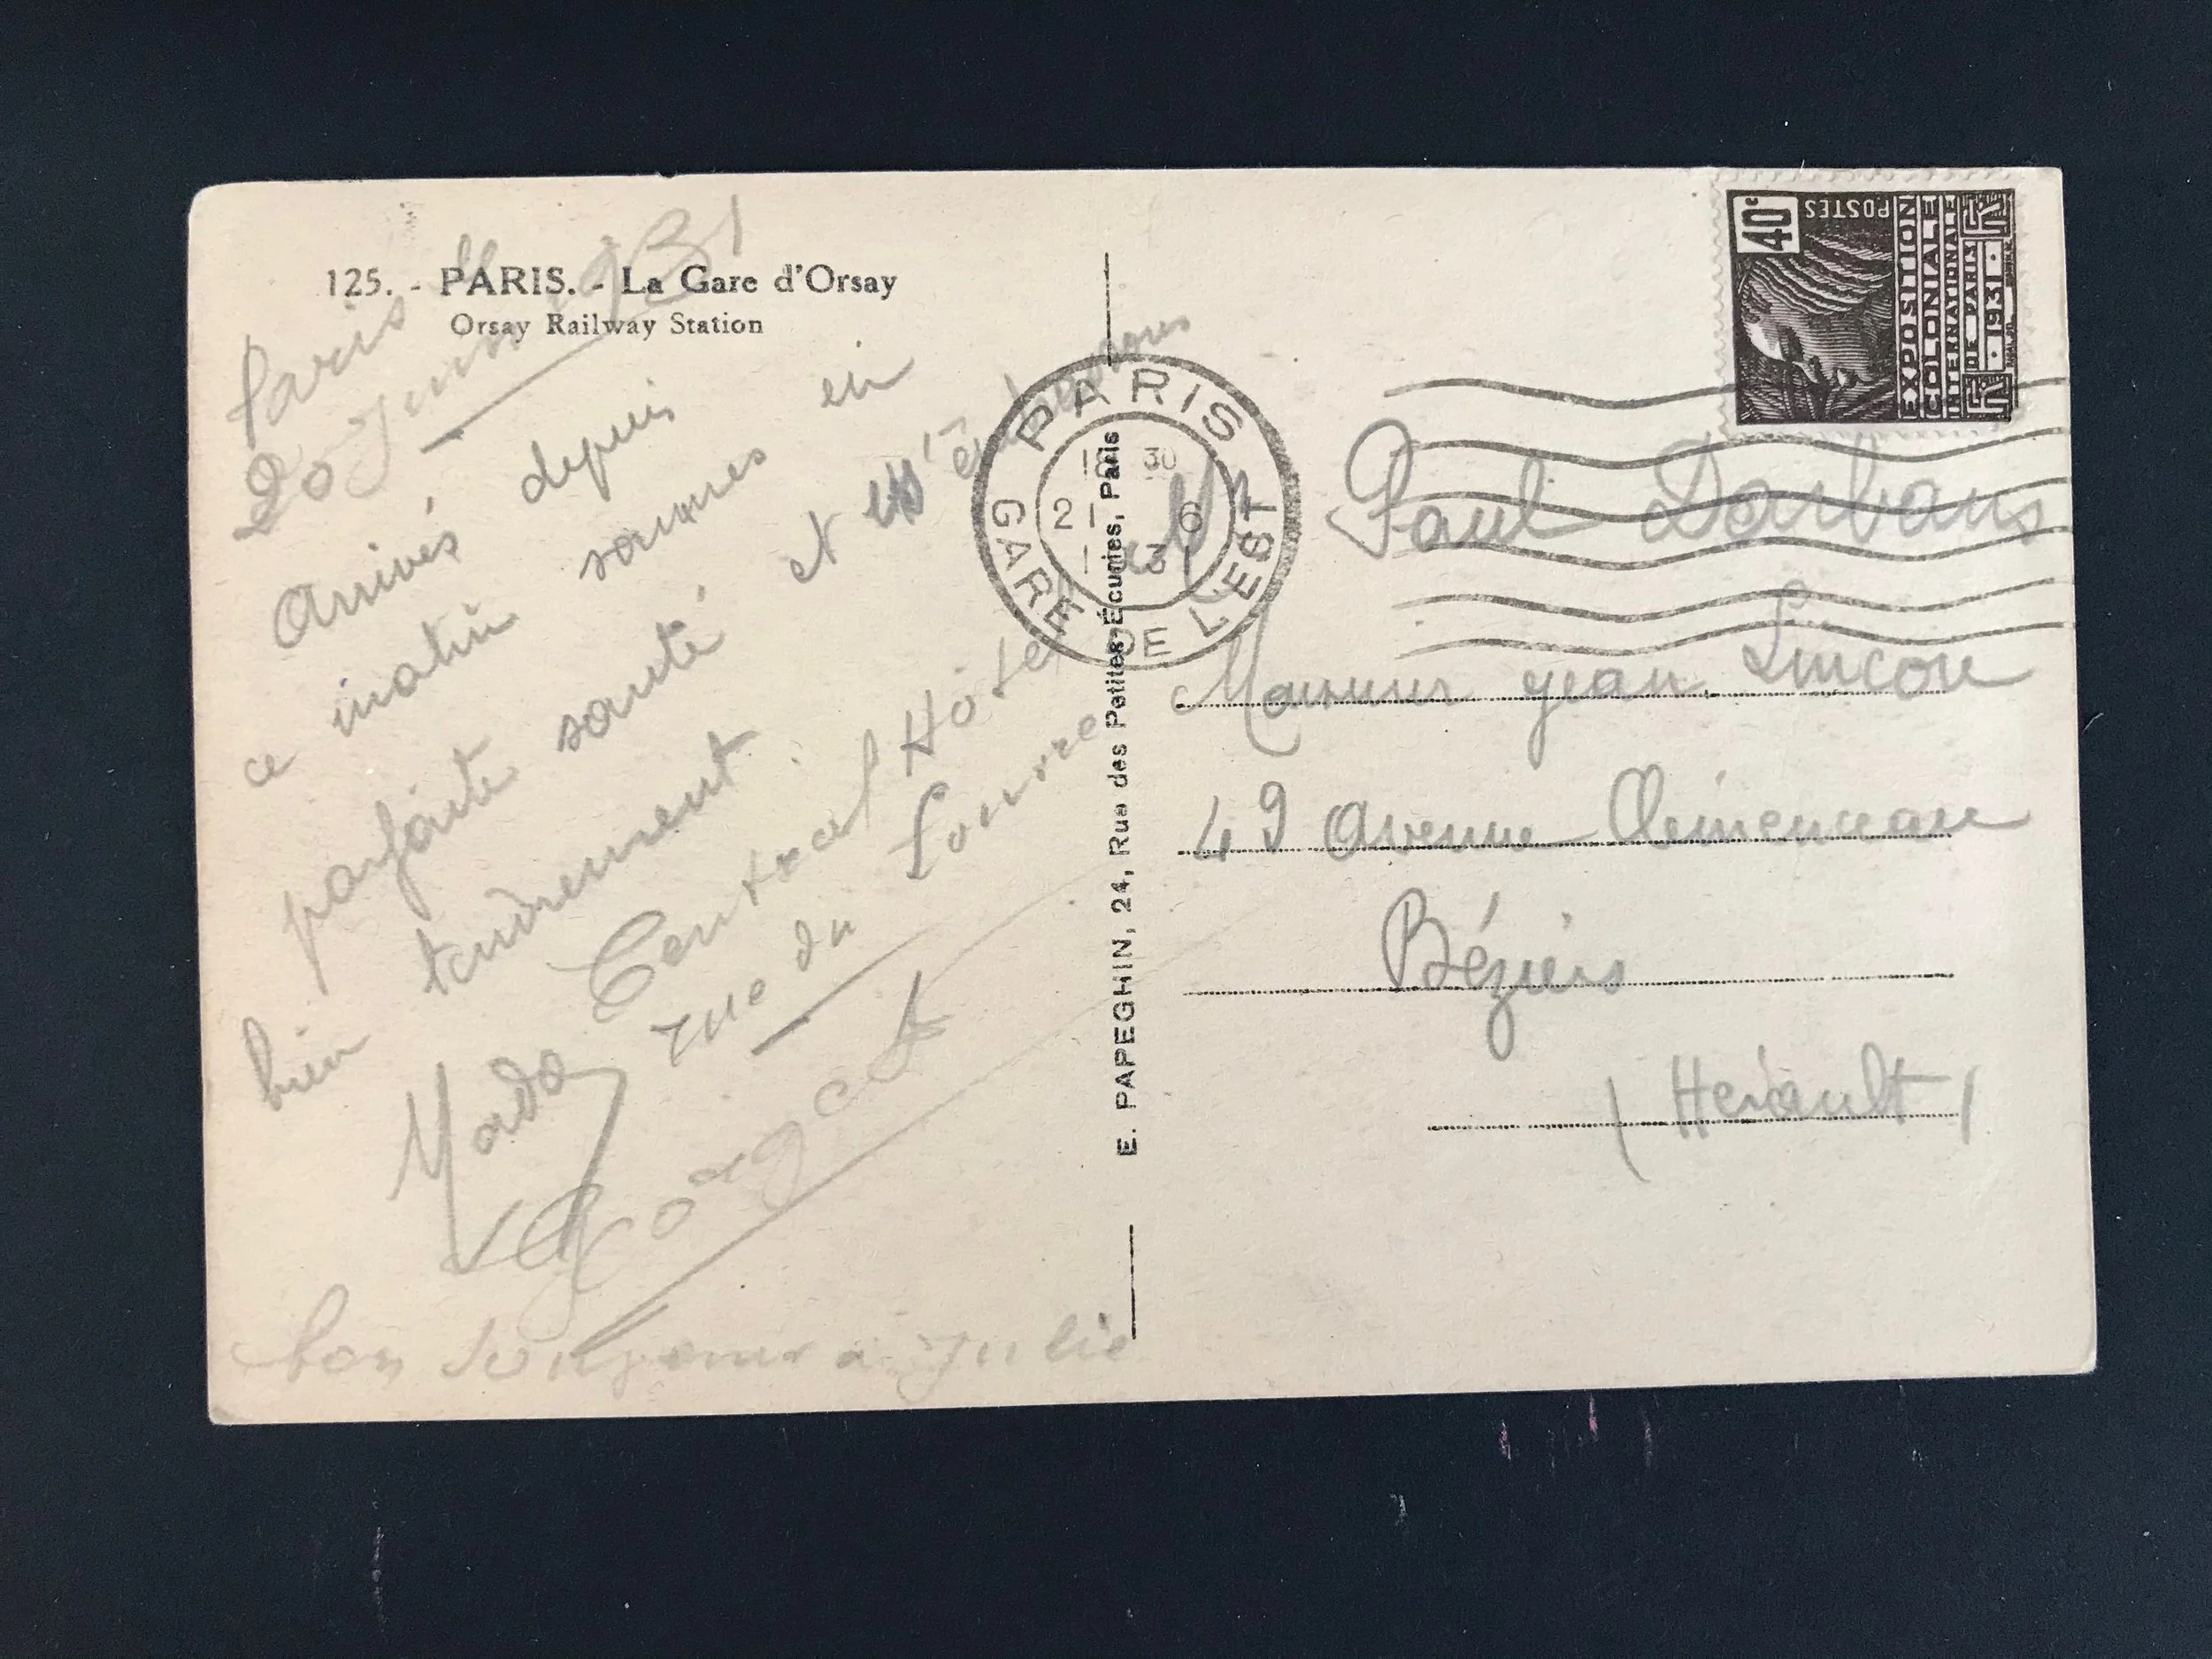 125. - PARIS. - La Gare d'Orsay
Orsay Railway Station
Paris le
20 Juin 1931
Arrivés depuis
ce matin sommes en
parfaite santé et
bien tendrement.
Central Hôtel
rue du Louvre
Mado
Georges
bon bonjour à Julie
E. PAPEGHIN, 24, Rue des Petites-Écuries, Paris
PARIS
GARE DE L'EST
18 30
21 6
1931
40c
POSTES
EXPOSITION
COLONIALE
INTERNATIONALE
DE PARIS
·1931·
Paul
Monsieur Jean
49 Avenue Clémenceau
Béziers
(Herault)